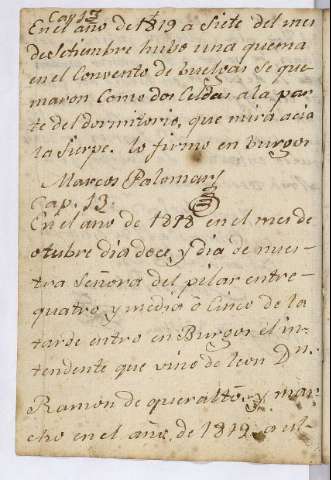 Cap. 12
En el año de 1819 a siete del mes
de Setiembre hubo una quema
en el Convento de buelgas se que
maron Como dos Celdas a la par
te del dormitorio, que mira acia
la sierpe. lo firmo en burgos
Marcos Palomar
Cap. 13.
En el año de 1818 en el mes de
otubre dia doce y dia de nues-
tra señora del pilar entre
quatro y medio ô Cinco de la
tarde entro en Burgos el in-
tendente que vino de leon Dn.
Ramon de queraltô y mar-
cho en el año de 1819. a ul-